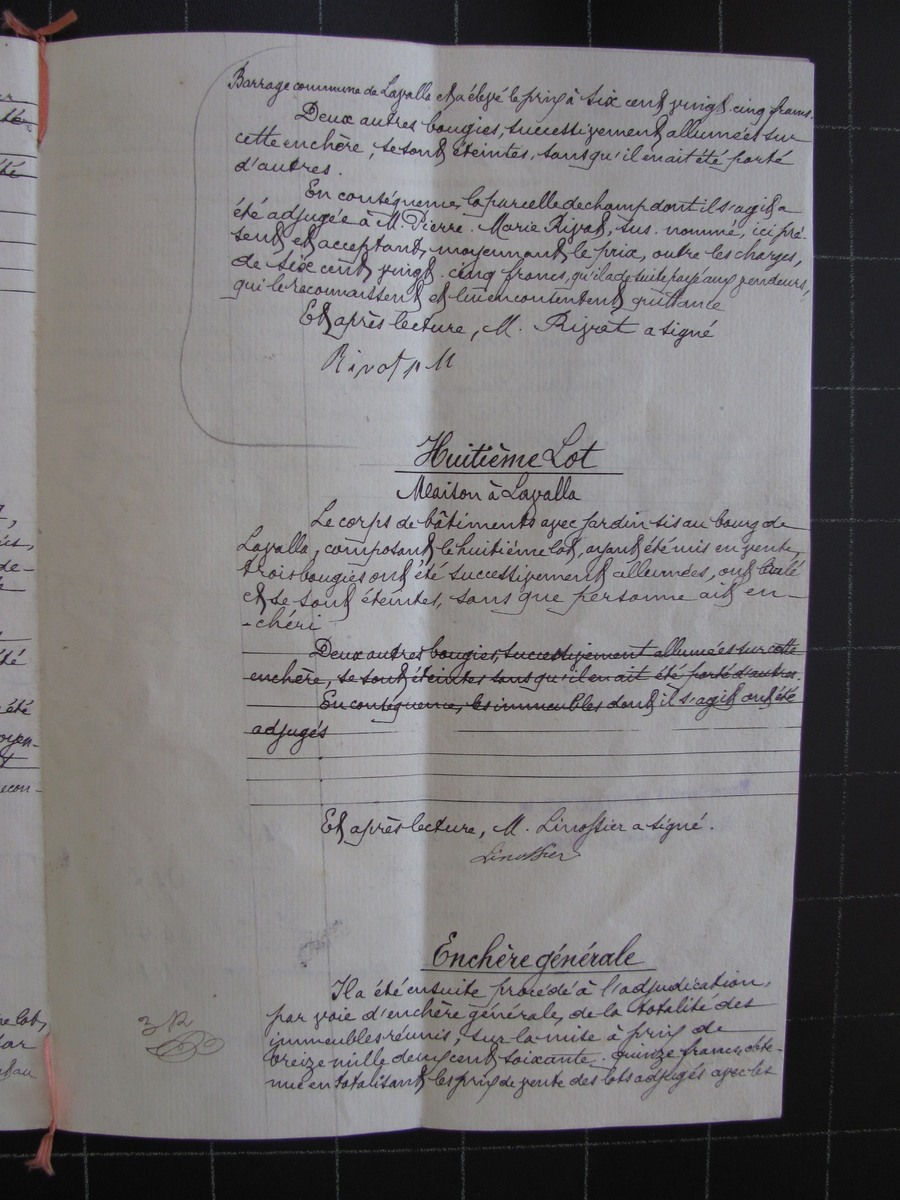 Barrage commune de Lavalla et a élevé le prix à six cent vingt-cinq francs.
Deux autres bougies, successivement allumées sur
cette enchère, se sont éteintes, sans qu'il en ait été porté
d'autres.
En conséquence, la parcelle de champ dont il s'agit a
été adjugée à M. Pierre-Marie Rivat, sus-nommé, ici pré-
sent et acceptant, moyennant le prix, outre les charges,
de six cent vingt-cinq francs, qu'il a de suite payé aux vendeurs,
qui le reconnaissent et lui en consentent quittance
Et après lecture, M. Rivat a signé
Rivat p M
Huitième Lot
Maison à Lavalla
Le corps de bâtiments avec jardin sis au bourg de
Lavalla, composant le huitième lot, ayant été mis en vente,
trois bougies ont été successivement allumées, ont brûlé
et se sont éteintes, sans que personne ait en-
-chéri
Deux autres bougies, successivement allumées sur cette
enchère, se sont éteintes sans qu'il en ait été porté d'autres.
En conséquence, les immeubles dont il s'agit ont été
adjugés
Et après lecture, M. Linossier a signé.
Linossier
Enchère générale
Il a été ensuite procédé à l'adjudication,
par voie d'enchère générale, de la totalité des
immeubles réunis, sur la mise à prix de
treize mille deux cent soixante-quinze francs, obte-
nue en totalisant les prix de vente des lots adjugés avec les